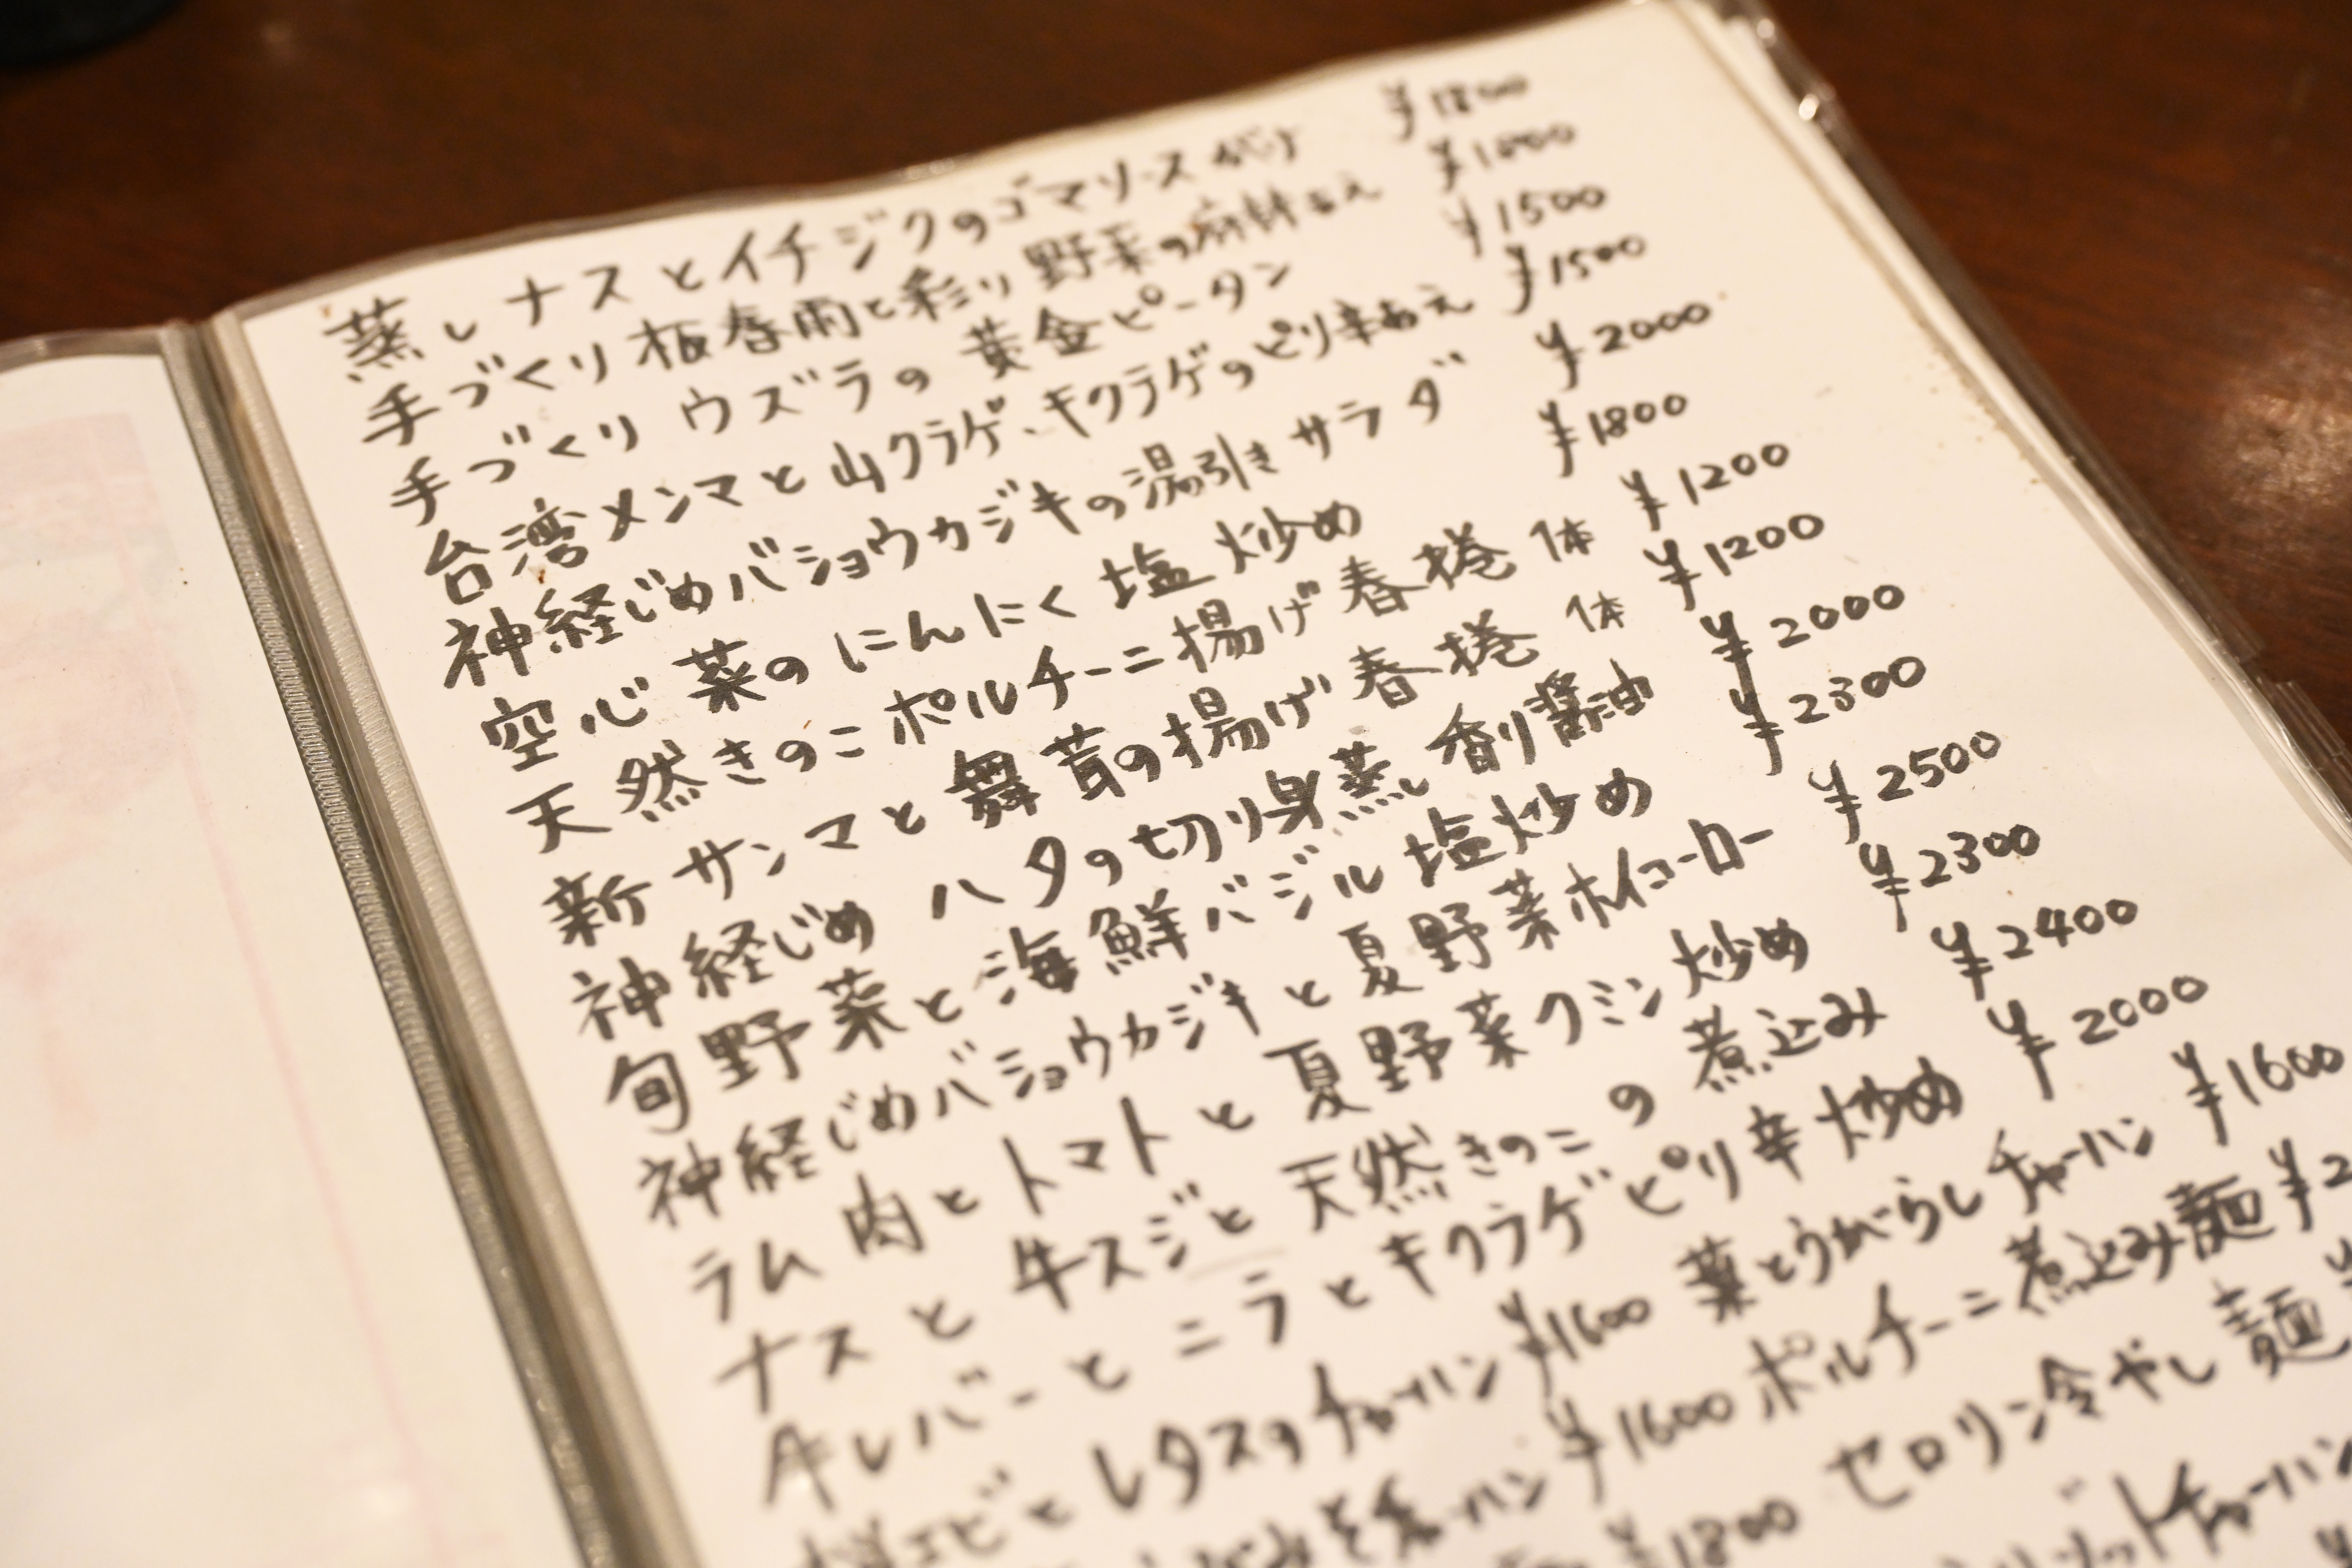 蒸しナスとイチジクのゴマソースがけ ¥1800
手づくり板春雨と彩り野菜の麻辣あえ ¥1600
手づくりウズラの黄金ピータン ¥1500
台湾メンマと山クラゲ、キクラゲのピリ辛あえ ¥1500
神経じめバショウカジキの湯引きサラダ ¥2000
空心菜のにんにく塩炒め ¥1800
天然きのこポルチーニ揚げ春捲 1本 ¥1200
新サンマと舞茸の揚げ春捲 1本 ¥1200
神経じめハタの切り身蒸し 香り醤油 ¥2000
旬野菜と海鮮バジル塩炒め ¥2300
神経じめバショウカジキと夏野菜ホイコーロー ¥2500
ラム肉とトマトと夏野菜クミン炒め ¥2300
ナスと牛スジと天然きのこの煮込み ¥2400
牛レバーとニラとキクラゲピリ辛炒め ¥2000
桜エビとレタスのチャーハン ¥1600 葉とうがらしチャーハン ¥1600
チャーハン ¥1600 ポルチーニ煮込み麺 ¥2
¥1800 セロリン冷やし麺 ¥
チャーハン